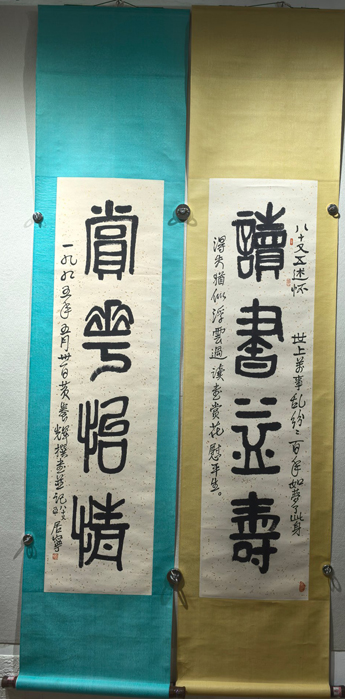 八十又五述懷
世上萬事亂紛〻百年如夢了此身
讀書益壽
得失猶似浮雲過讀書賞花慰平生。
賞華怡情
一九九五年五月廿日黃養輝撰書並記於居寧